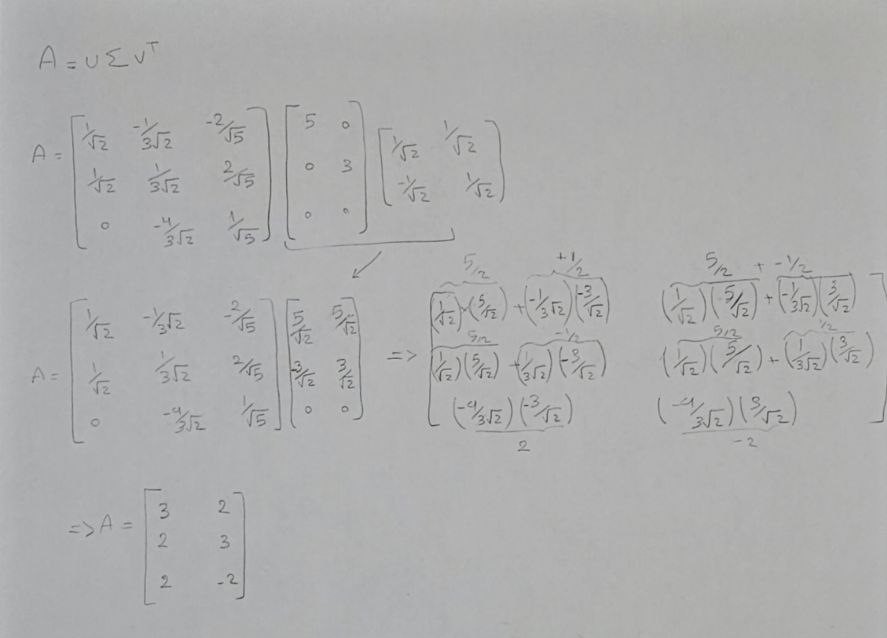 A = U Σ V^T
A = [1/√2 -1/3√2 -2/√5; 1/√2 1/3√2 2/√5; 0 -4/3√2 1/√5] [5 0; 0 3; 0 0] [1/√2 1/√2; -1/√2 1/√2]
A = [1/√2 -1/3√2 -2/√5; 1/√2 1/3√2 2/√5; 0 -4/3√2 1/√5] [5/√2 5/√2; -3/√2 3/√2; 0 0]
5/2 +1/2 5/2 + -1/2
=> [(1/√2)(5/√2) + (-1/3√2)(-3/√2) (1/√2)(5/√2) + (-1/3√2)(3/√2)
5/2 -1/2 5/2 1/2
(1/√2)(5/√2) + (1/3√2)(-3/√2) (1/√2)(5/√2) + (1/3√2)(3/√2)
(-4/3√2)(-3/√2) (-4/3√2)(3/√2)]
2 -2
=> A = [3 2; 2 3; 2 -2]